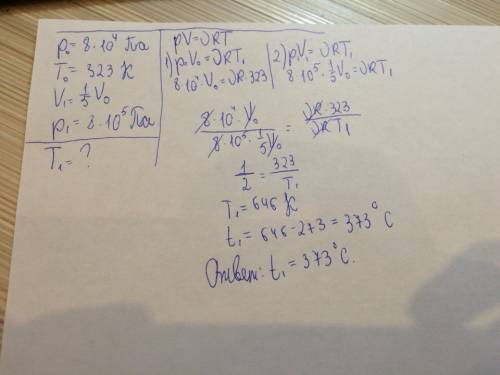 p₀ = 8·10⁴ Па
T₀ = 323 К
V₁ = 1/5 V₀
p₁ = 8·10⁵ Па
T₁ = ?
pV = νRT
1) p₀V₀ = νRT₁
8·10⁴·V₀ = νR·323
2) p₁V₁ = νRT₁
8·10⁵·1/5 V₀ = νRT₁
8·10⁴·V₀ / 8·10⁵·1/5 V₀ = νR·323 / νRT₁
1/2 = 323/T₁
T₁ = 646 К
t₁ = 646-273 = 373°C
Ответ: t₁ = 373°C.